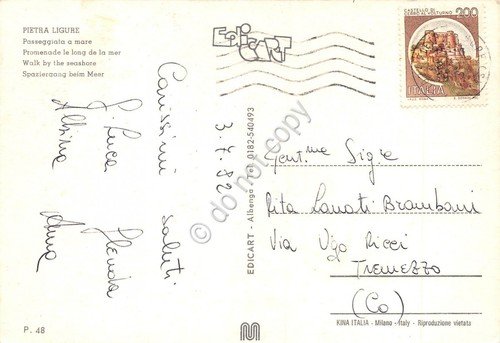 PIETRA LIGURE
Passeggiata a mare
Promenade le long de la mer
Walk by the seashore
Spaziergang beim Meer
Carissimi saluti
Luca
Albina
Anna
3.7.82
EDICART - Albenga - Tel. 0182-540493
P. 48
Edi CART
CASTELLO DI
200
ITALIA
Gent.me Sig.re
Rita Brambani
Via Ugo Ricci
Tremezzo
(Co)
KINA ITALIA - Milano - Italy - Riproduzione vietata
© do not copy